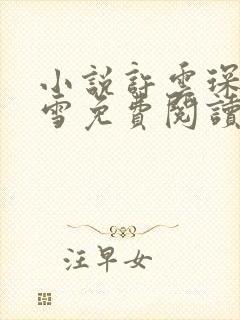 小説許雲琛
雪免費閱讀
汪早女